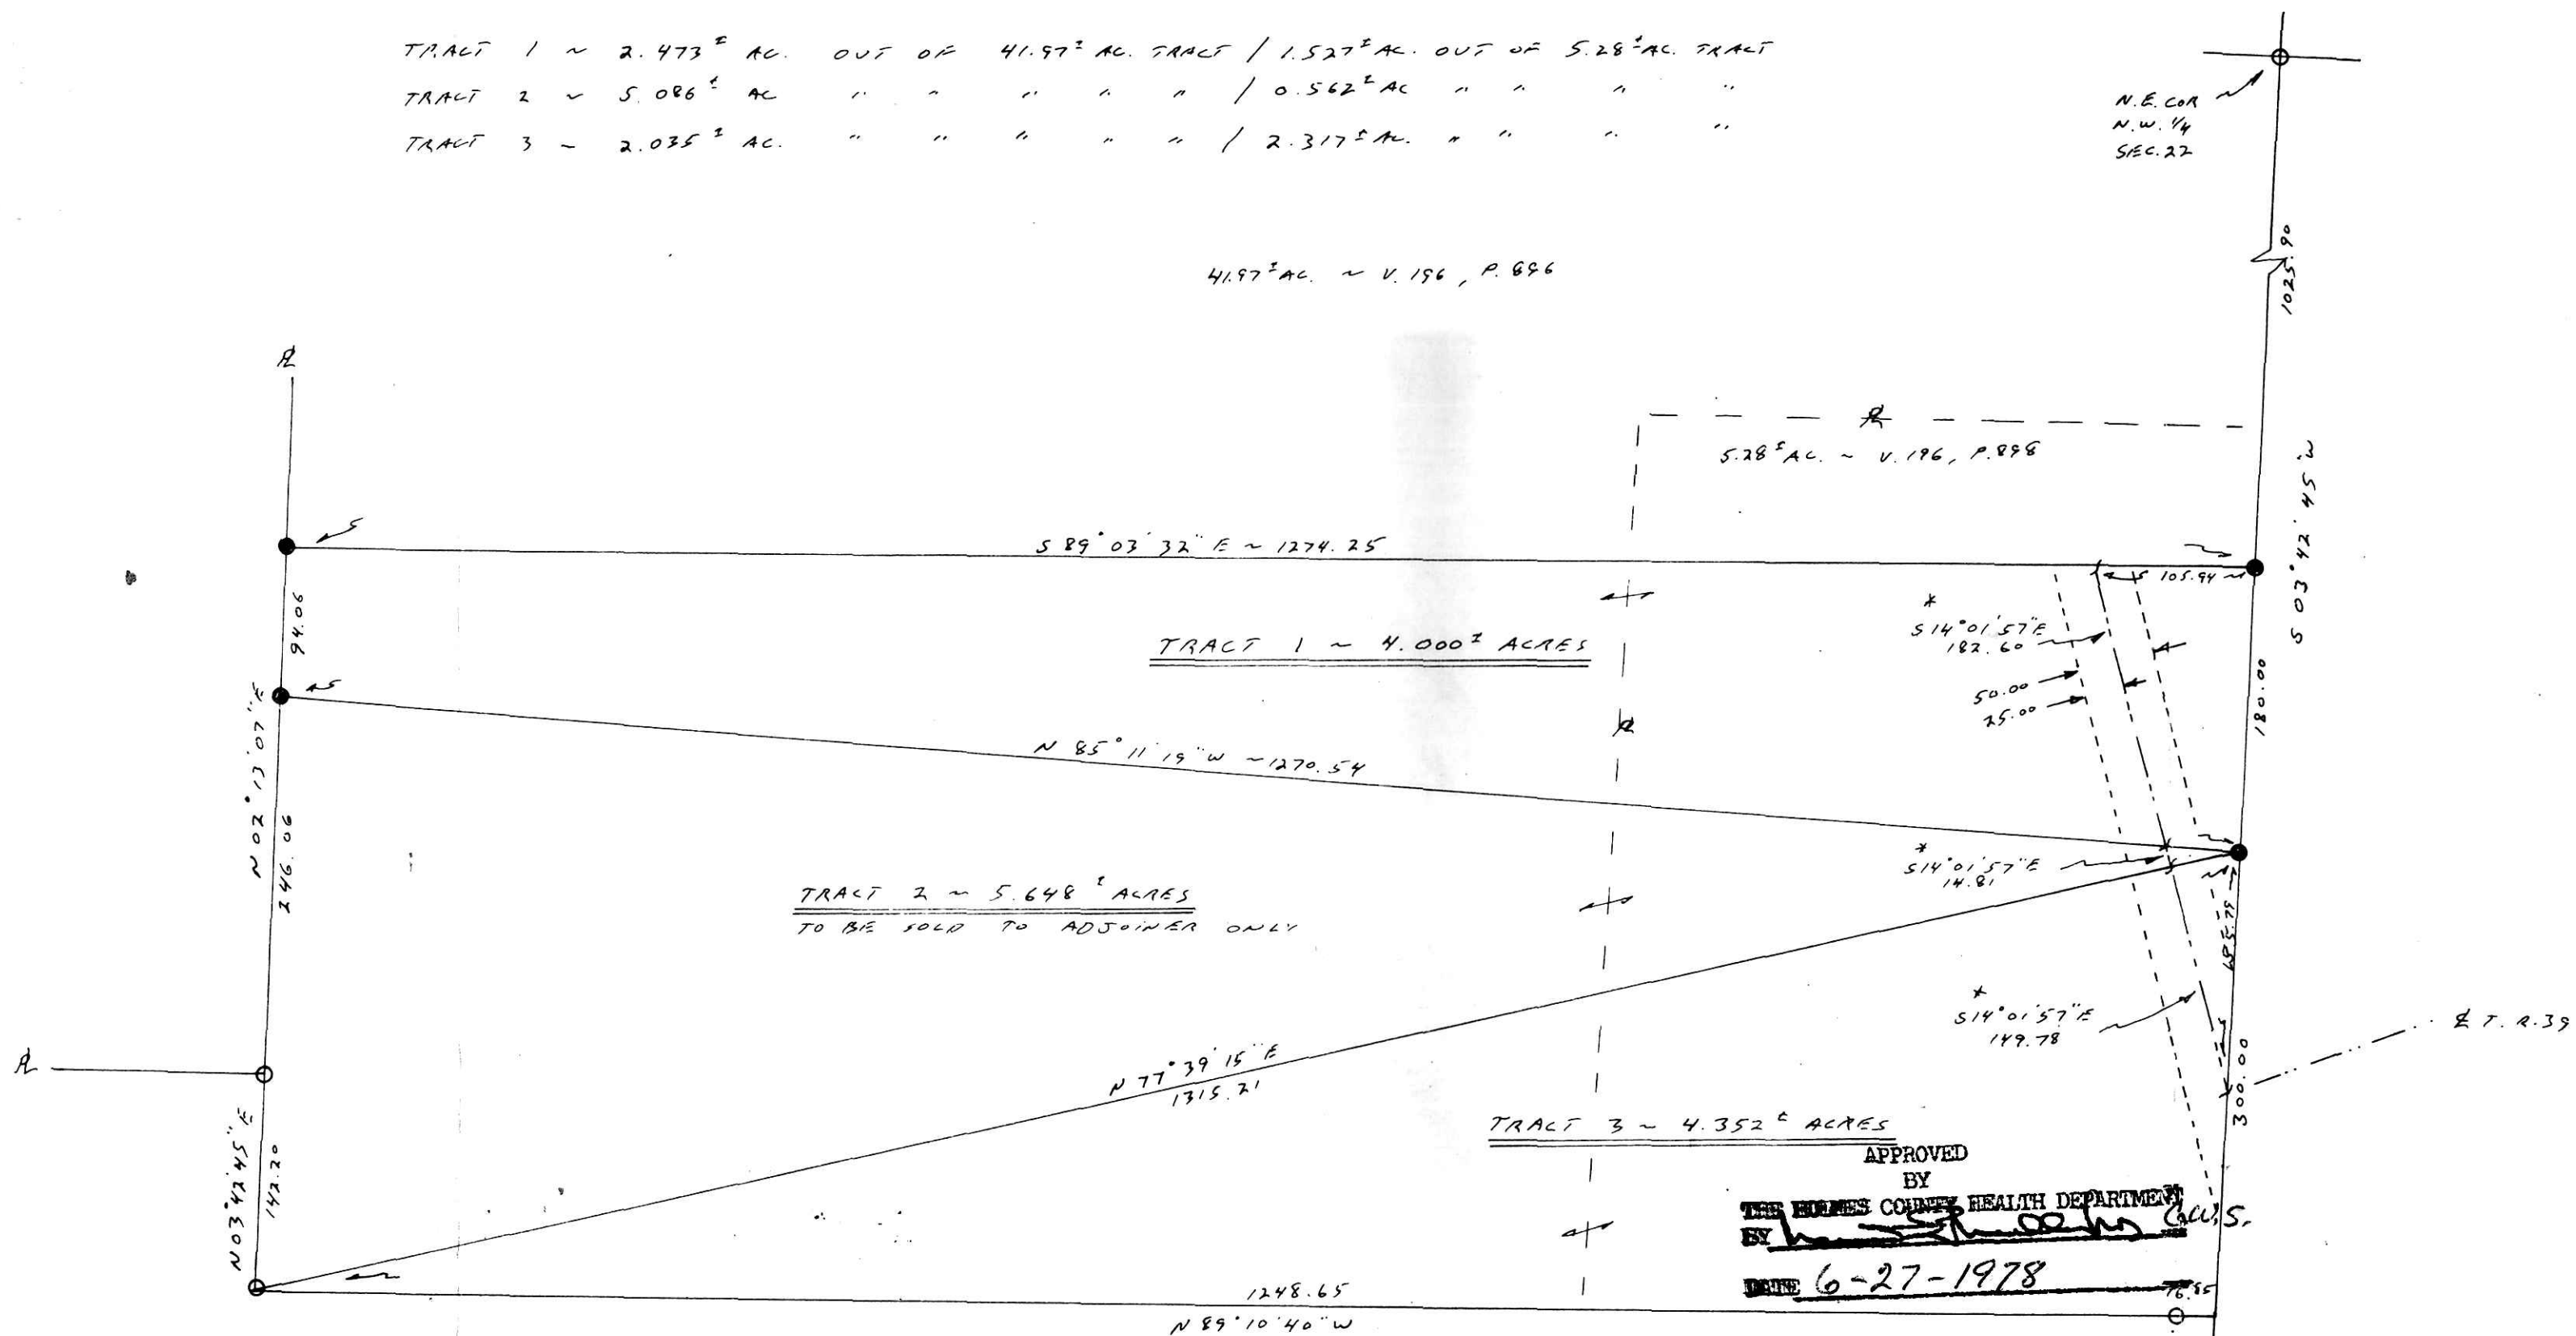 TRACT 1 ~ 2.473± AC. OUT OF 41.97± AC. TRACT / 1.527± AC. OUT OF 5.28± AC. TRACT
TRACT 2 ~ 5.086± AC " " " " " / 0.562± AC " " " "
TRACT 3 ~ 2.035± AC. " " " " " / 2.317± AC. " " " "
N.E. COR
N.W. 1/4
SEC. 22
1025.90
41.97± AC. ~ V. 196, P. 896
5.28± AC. ~ V. 196, P. 898
S 03° 42' 45" W
S 89° 03' 32" E ~ 1274.25
105.94
94.06
TRACT 1 ~ 4.000± ACRES
*
S 14° 01' 57" E
182.60
50.00
25.00
180.00
N 02° 13' 07" E
246.06
N 85° 11' 19" W ~ 1270.54
*
S 14° 01' 57" E
14.81
TRACT 2 ~ 5.648± ACRES
TO BE SOLD TO ADJOINER ONLY
*
S 14° 01' 57" E
149.78
℄ T. R. 39
300.00
N 77° 39' 15" E
1315.21
N 03° 42' 45" E
142.20
TRACT 3 ~ 4.352± ACRES
APPROVED
BY
THE HOLMES COUNTY HEALTH DEPARTMENT
BY
DATE 6-27-1978
76.85
1248.65
N 89° 10' 40" W